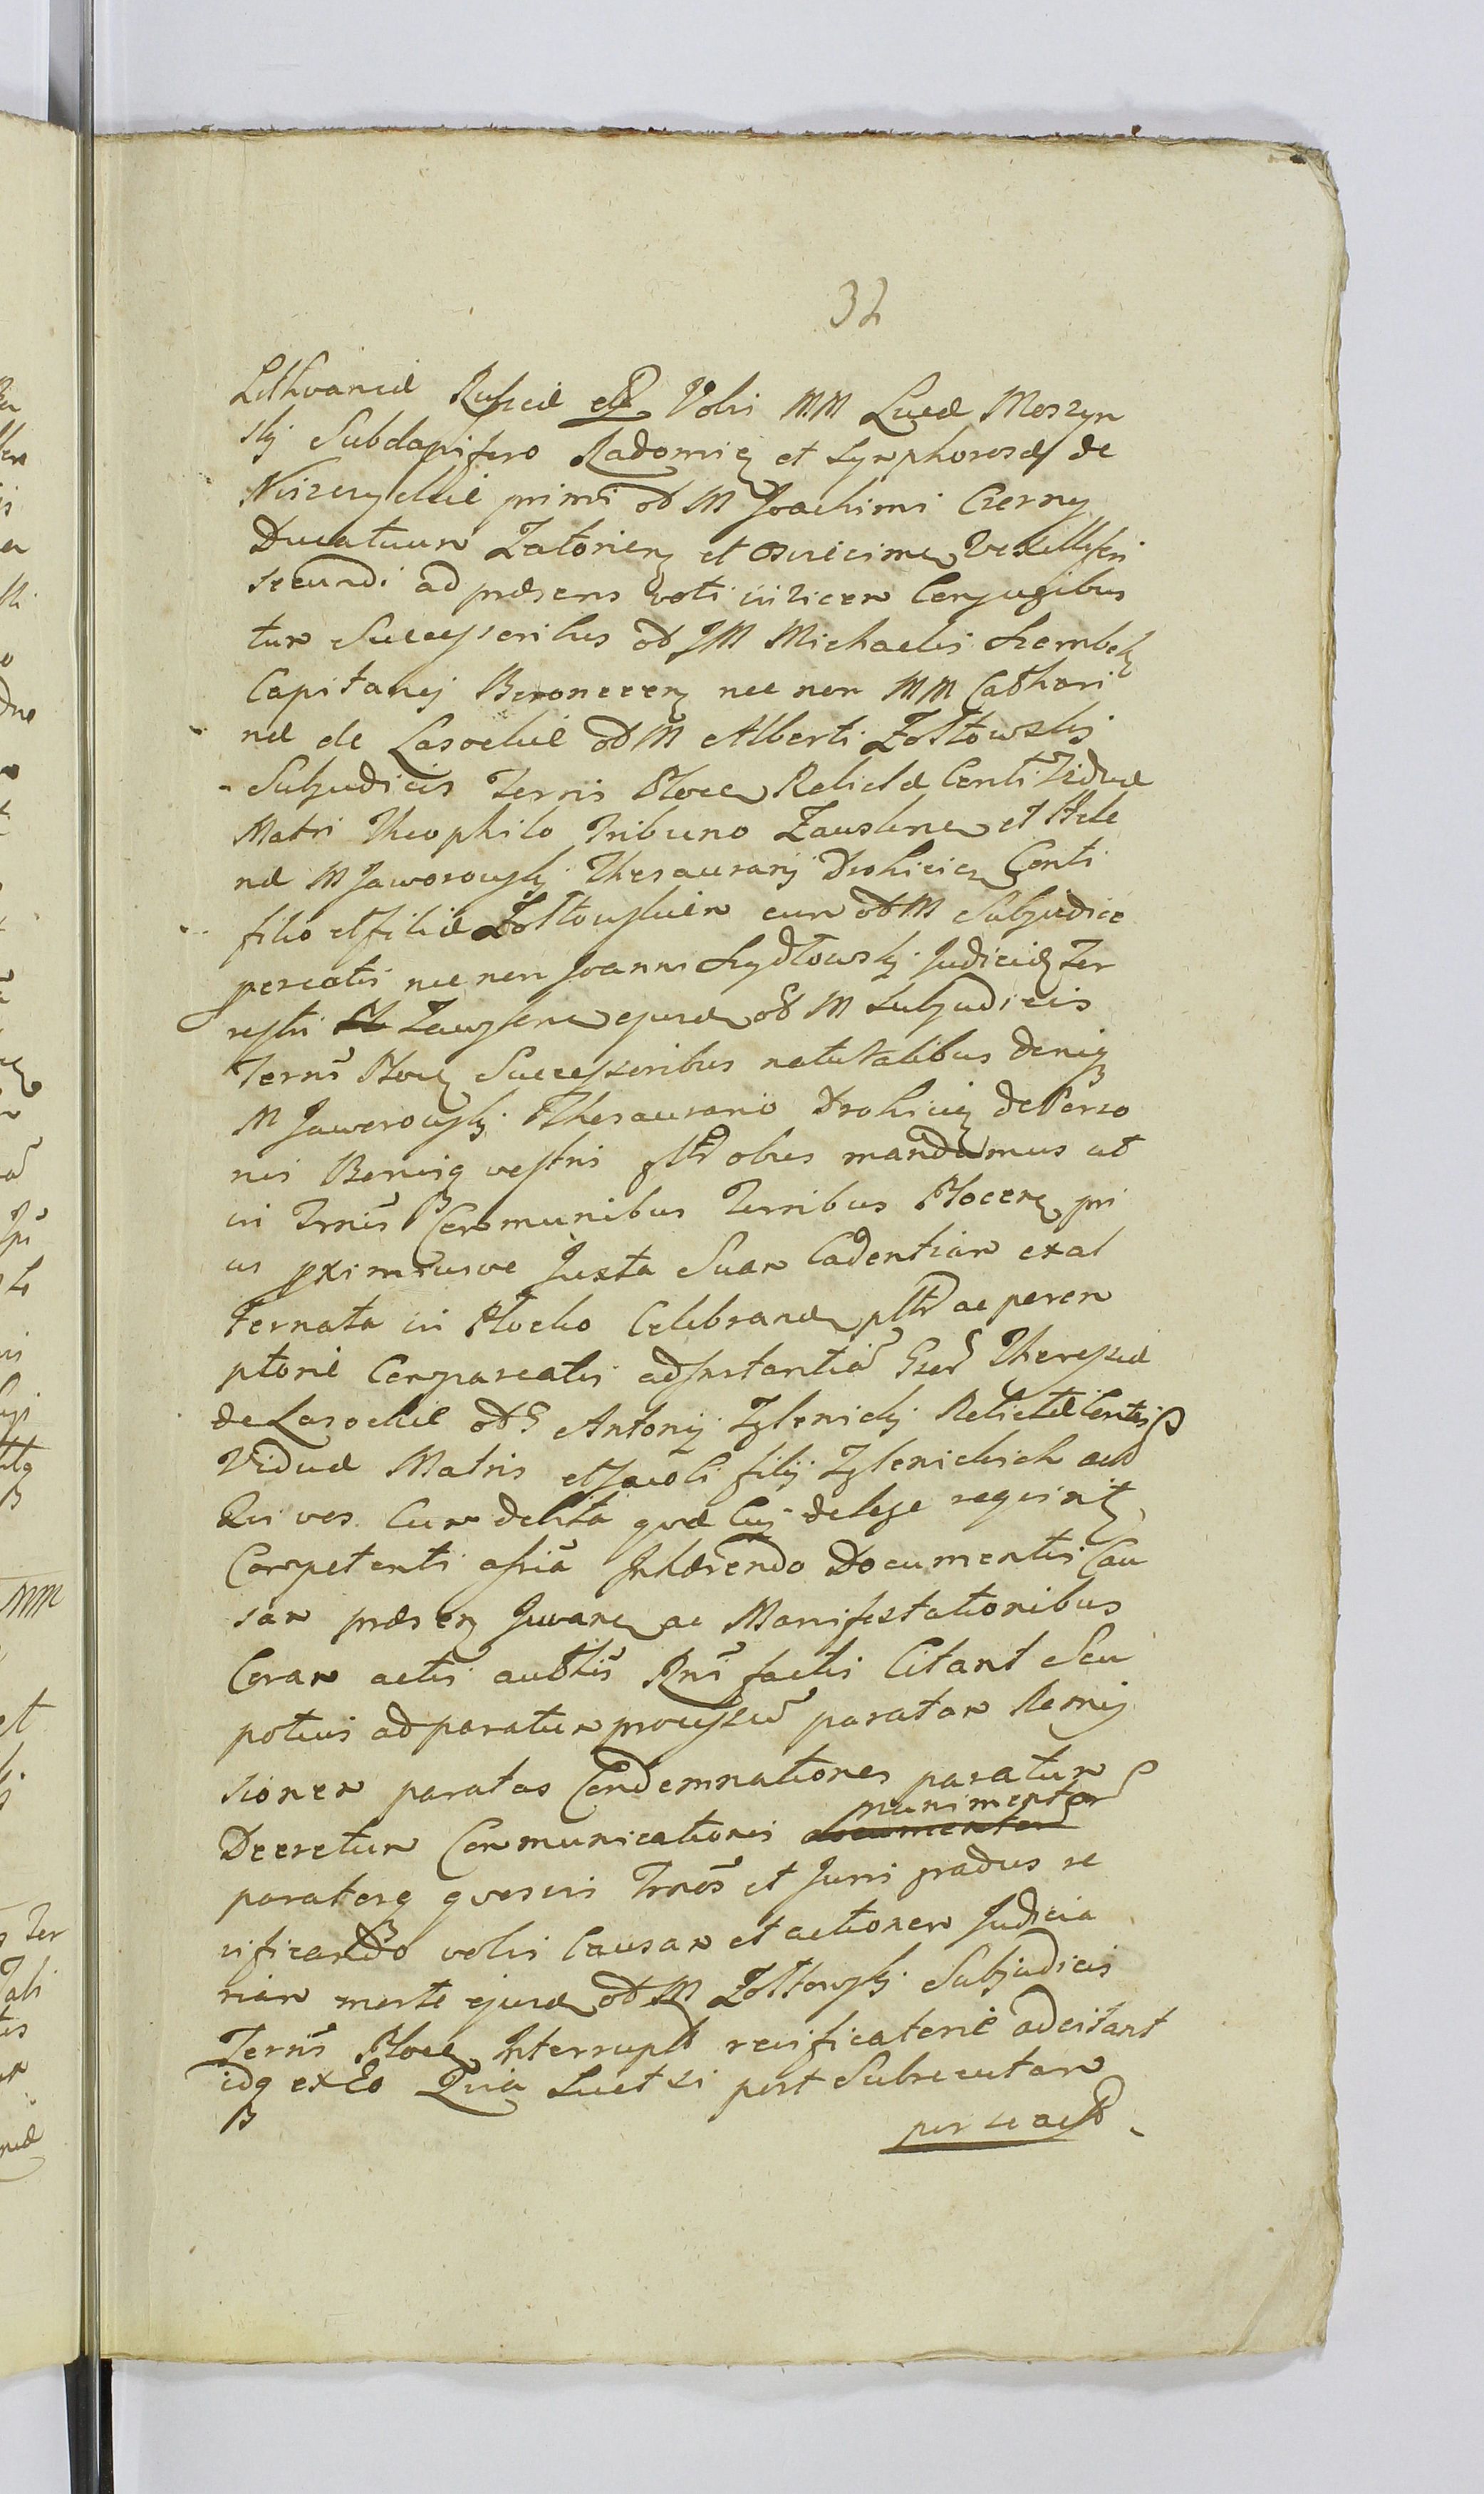 32
Lithvaniæ Russiæ etc Vobis MM Lucæ Moszyn
skj Subdapifero Radomien et Symphorosæ de
Niszczyckie primi od M Joachimi Czerny
Ducatuum Zatorien et Osviecimen Vexilliferi
secundi ad præsens voti invicem Conjugibus
tum Successoribus od JM Michaelis Szembek
Capitanej nec non MM Cathari
næ de Lasockie od M Alberti Zołtowskj
Subjudicis Terris Plocen Relictæ Conti Viduæ
Matri Theophilo Tribuno Zauskrne et Hele
næ M Jaworowskj Thesaurarij Drohicien Conti
filio et filiæ Zołtowskiem cum od M Subjudice
percatis nec non Joanni Szydłowskj Judicii Ter
restri Zawskrne ejusd od M Subjudicis
Terris Plocen Successoribus natutalibus deniq
M Jaworowskj Thesaurario Drohicien de Perso
nis Bonisq vestris oibus mandamus ut
in Trnis Communibus Terribus Plocen pri
us pximiusve Juxta Suam Cadentiam exal
ternata in Plocko Celebrand pltr ac perem
ptorie Compareatis ad Instantiam Gser Theresiæ
de Lasockie od G Antonij Zglenickj Relictæ Contis
Viduæ Matris et Jacobi filij Zglenickich
Qui vos Cum delita qvæ Cuj de lege reqvirit
Competenti assia Inhærendo Documentis Cau
sam præsen Juvan ac Manifestationibus
Coram actis authtis Rnis factis Citant Seu
potius ad paratum processum paratam Remis
sionem paratas Condemnationes paratum
Decretum Communicationis documentor munimentor
paratosq qvosvis Trnos et Juris gradus re
sificando vobis Causam et actionem Judicia
riam morte ejusd od M Zołtowskj Subjudicis
Terris Plocen Interrupt reisificatorie adcitant
idq ex Eo Qvia Licet si post Subsecutam
per se actt